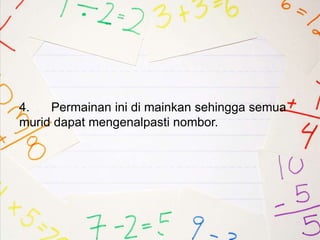 1÷2=2 3+3=6
4. Permainan ini di mainkan sehingga semua
murid dapat mengenalpasti nombor.
+1
4
8
10
-5
5
+5=
7-2=5
9-